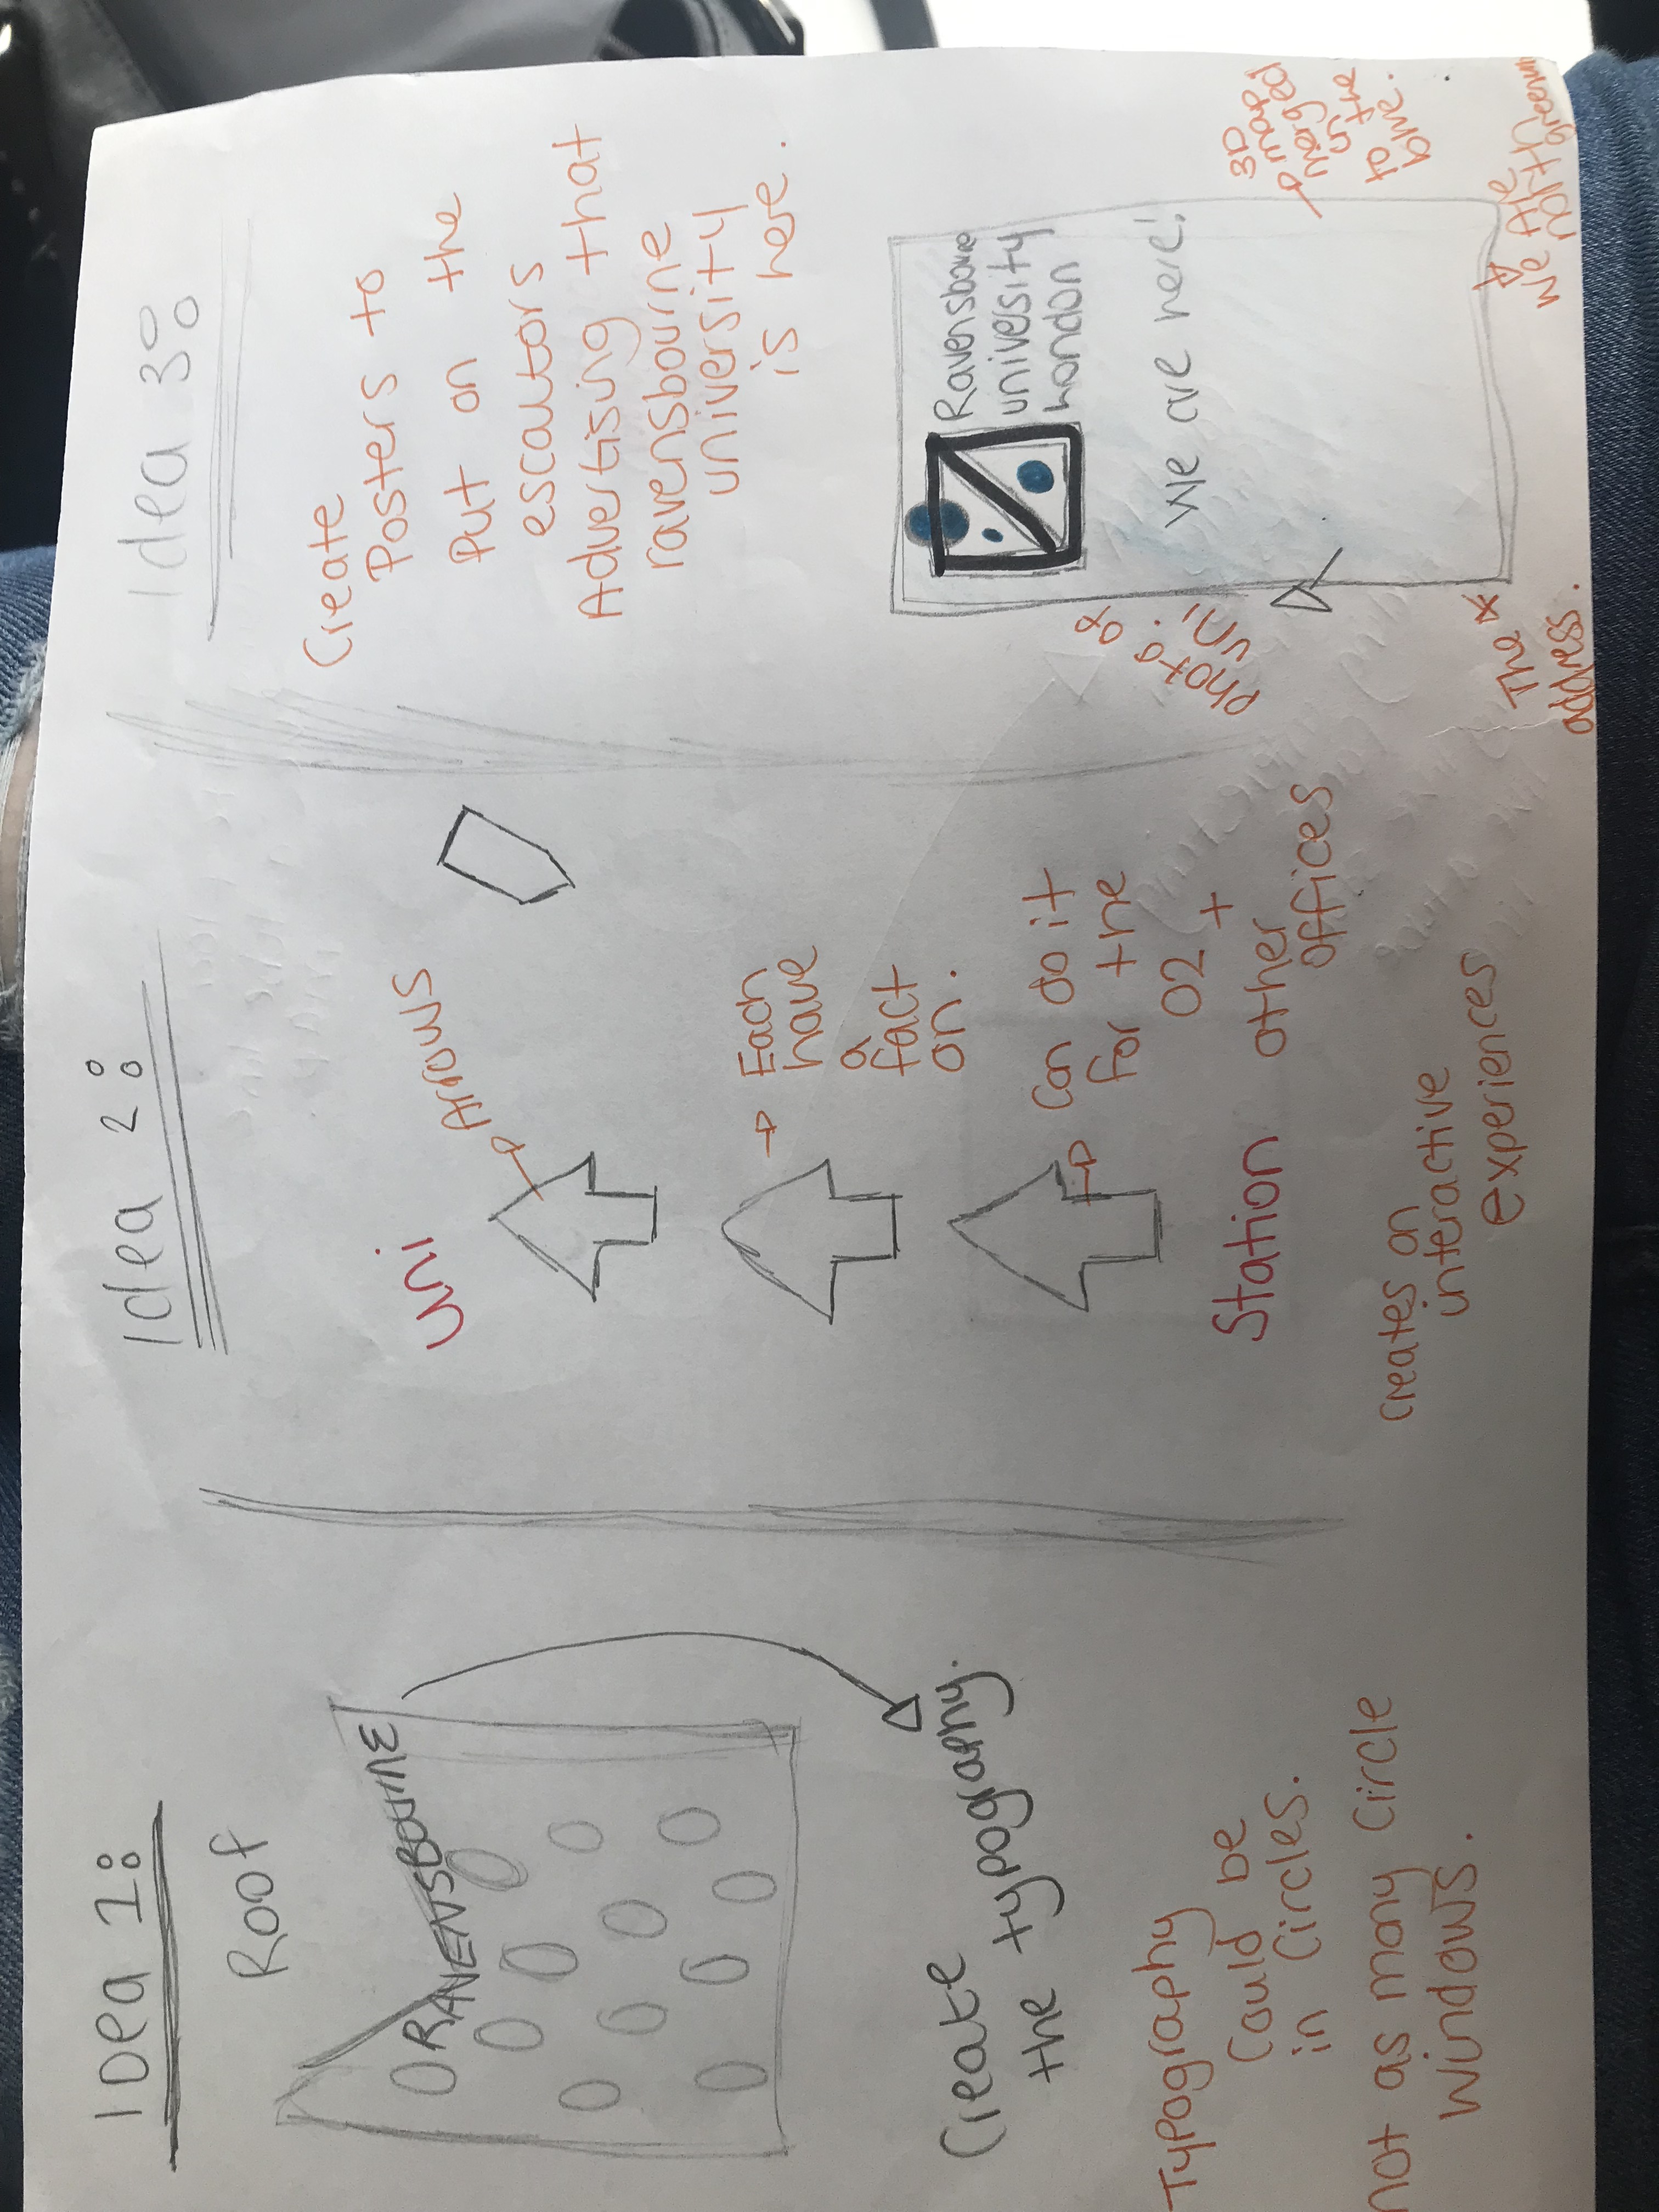 Idea 1:
Roof
RAVENSBOURNE
Create
the typography.
Typography
Could be
in Circles.
not as many Circle
Windows.
Idea 2:
uni
Arrows
Each
have
a
fact
on.
Can do it
for the
O2 +
other
offices
Station
creates an
interactive
experiences
Idea 3:
Create
Posters to
Put on the
escaltors
Advertising that
ravensbourne
university
is here.
Ravensboune
university
London
We are here!
photo of
uni
The
address.
3D
map
merged
in
to the
blue.
We are
north